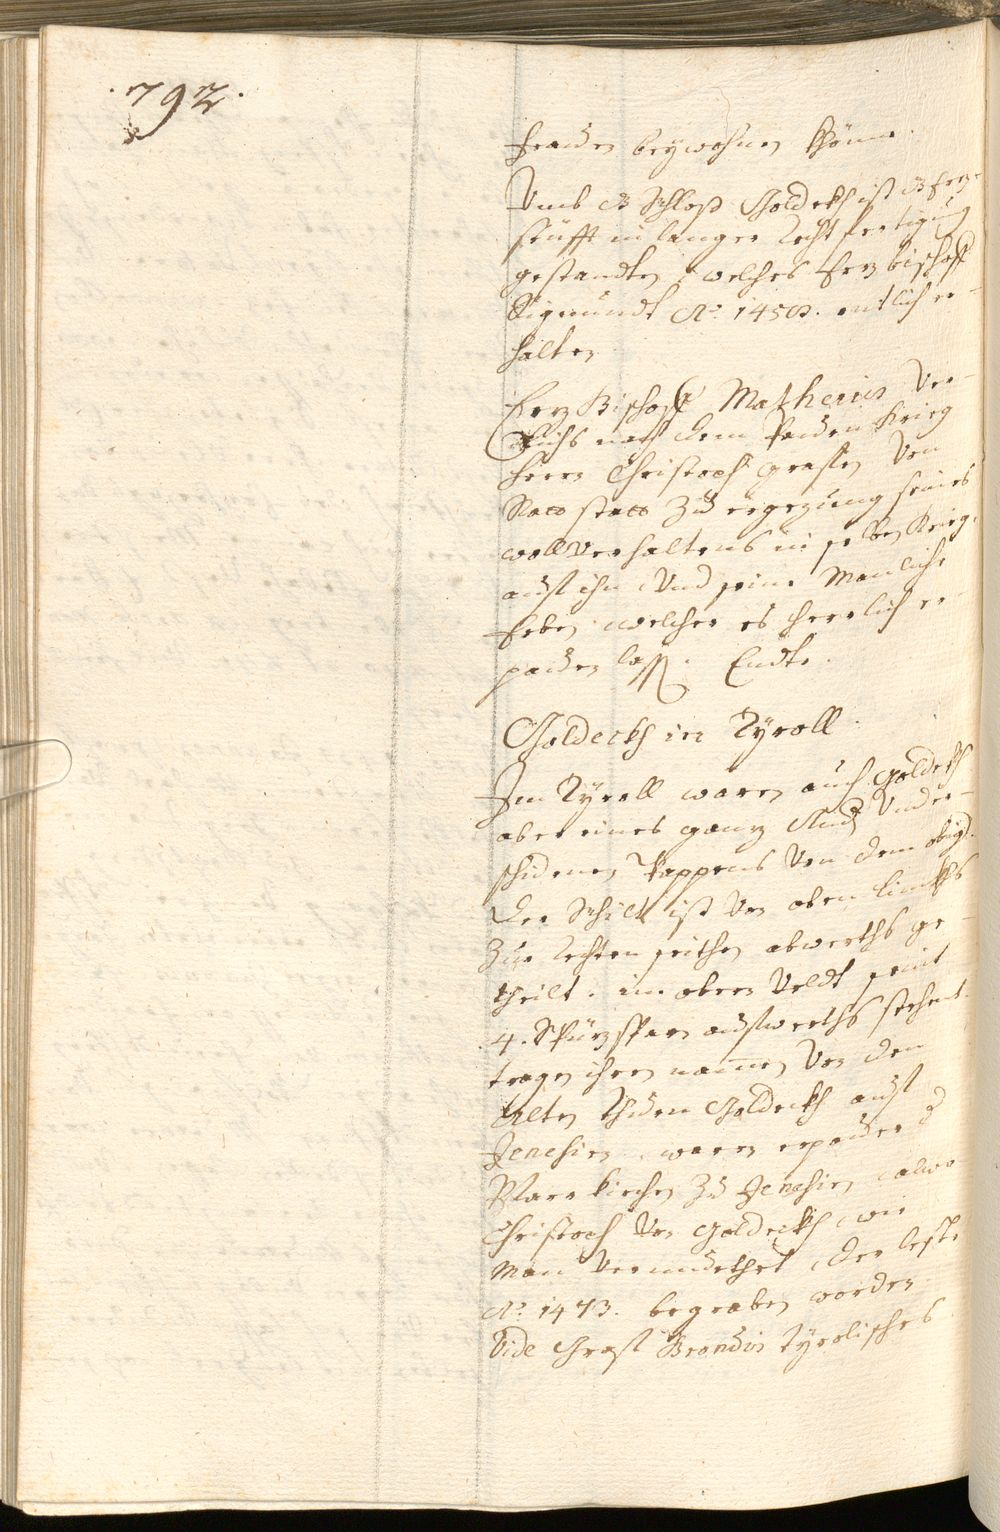 .792.
freuden beywohnen khönne.
Umb dz Schloß Goldekh ist dz Erz-
stüfft in langer rechtfertigung
gestandten, welches Erzbischoff
Sigmundt Ao. 1458. entlich er-
halten
Erz Bischoff Matheus ver-
lichs nach dem Paurn Krieg
Herrn Christoph Graffen von
zu ergezung seines
wollverhaltens in selben Krieg,
auf ihn und seine Manliche
Erben welcher es herrlich er-
pauen lass. Endte.
Goldeckh in Tyroll.
In Tyroll waren auch Goldekh
aber eines ganz und under-
schidenen Wappens von dem obig.
Der Schilt ist von oben linckhs
zur rechten seithen abwerths ge-
theilt. im obern Veldt seint
4. auswerths stehent.
tragen ihren namen von dem
alten Goldeckh auf
Jenesien, waren erpauer d
Pfarrkirchen zu Jenesien, alwo
Christoph von Goldeckh, wie
man vermuethet, der leste
Ao. 1473. begraben worden
Vide Graf Brandis Tyrolisches